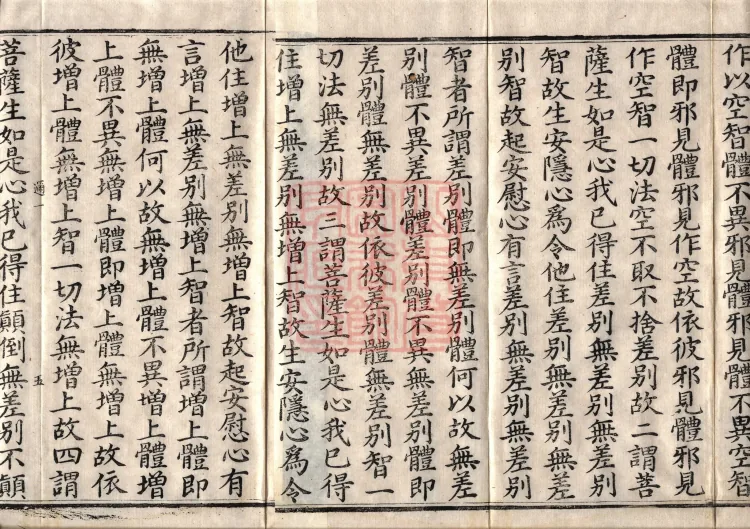 作以空智體不異邪見體邪見體不異空智
體即邪見體邪見作空故依彼邪見體邪見
作空智一切法空不取不捨差別故二謂菩
薩生如是心我已得住差別無差別無差別
智故生安隱心爲令他住差別無差別無差
別智故起安慰心有言差別無差別無差別
智者所謂差別體即無差別體何以故無差
別體不異差別體差別體不異無差別體即
差別體無差別故依彼差別體無差別智一
切法無差別故三謂菩薩生如是心我已得
住增上無差別無增上智故生安隱心爲令
他住增上無差別無增上智故起安慰心有
言增上無差別無增上智者所謂增上體即
無增上體何以故無增上體不異增上體增
上體不異無增上體即增上體無增上故依
彼增上體無增上智一切法無增上故四謂
五
菩薩生如是心我已得住顛倒無差別不顛